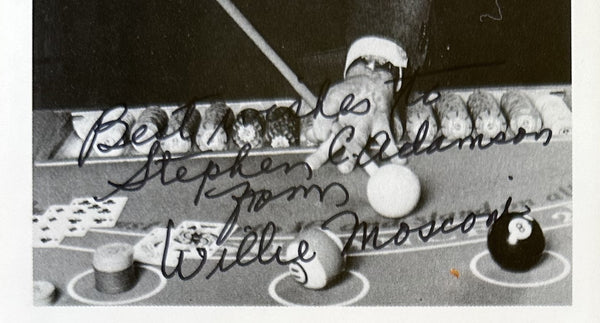 Best Wishes to
Stephen C. Adamson
from
Willie Mosconi
8